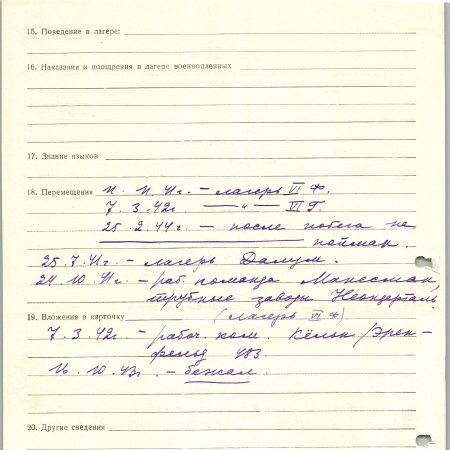 15. Поведение в лагере:
16. Наказания и поощрения в лагере военнопленных
17. Знание языков
18. Перемещения 11. 11. 41г. – лагерь VI Ф.
7. 3. 42г. — " — VI Г.
25. 2. 44г. – после побега не
пойман.
25. 7. 41г. – лагерь Далум.
24. 10. 41г. – раб. команда Манесман,
трубные заводы Неандерталь
19. Вложения в карточку (лагерь VI Ф)
7. 3. 42г. – рабоч. ком. Кёльн /Эрен-
фельд 483.
16. 10. 43г. – бежал.
20. Другие сведения